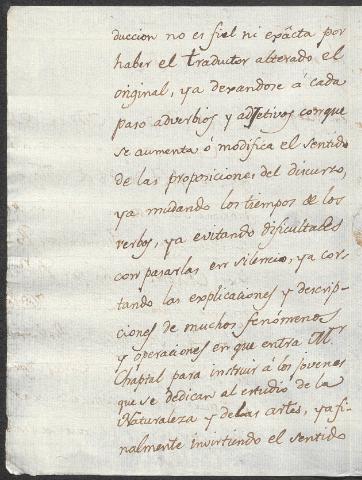 duccion no es fiel ni exâcta por
haber el traductor alterado el
original, ya dexandose á cada
paso adverbios y adjetivos con que
se aumenta ó modifica el sentido
de las proposiciones del discurso,
ya mudando los tiempos de los
verbos, ya evitando dificultades
con pasarlas en silencio, ya cor-
tando las explicaciones y descrip-
ciones de muchos fenómenos
y operaciones en que entra Mr
Chaptal para instruir á los jovenes
que se dedican al estudio de la
Naturaleza y de las artes, ya fi-
nalmente invirtiendo el sentido